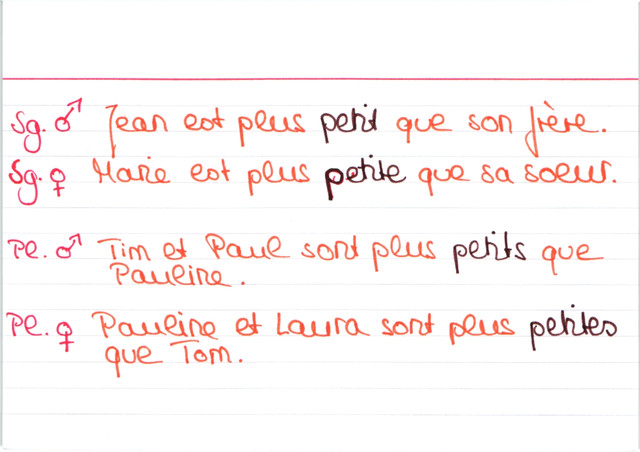 Sg. ♂ Jean est plus petit que son frère.
Sg. ♀ Marie est plus petite que sa soeur.
Pl. ♂ Tim et Paul sont plus petits que
Pauline.
Pl. ♀ Pauline et Laura sont plus petites
que Tom.